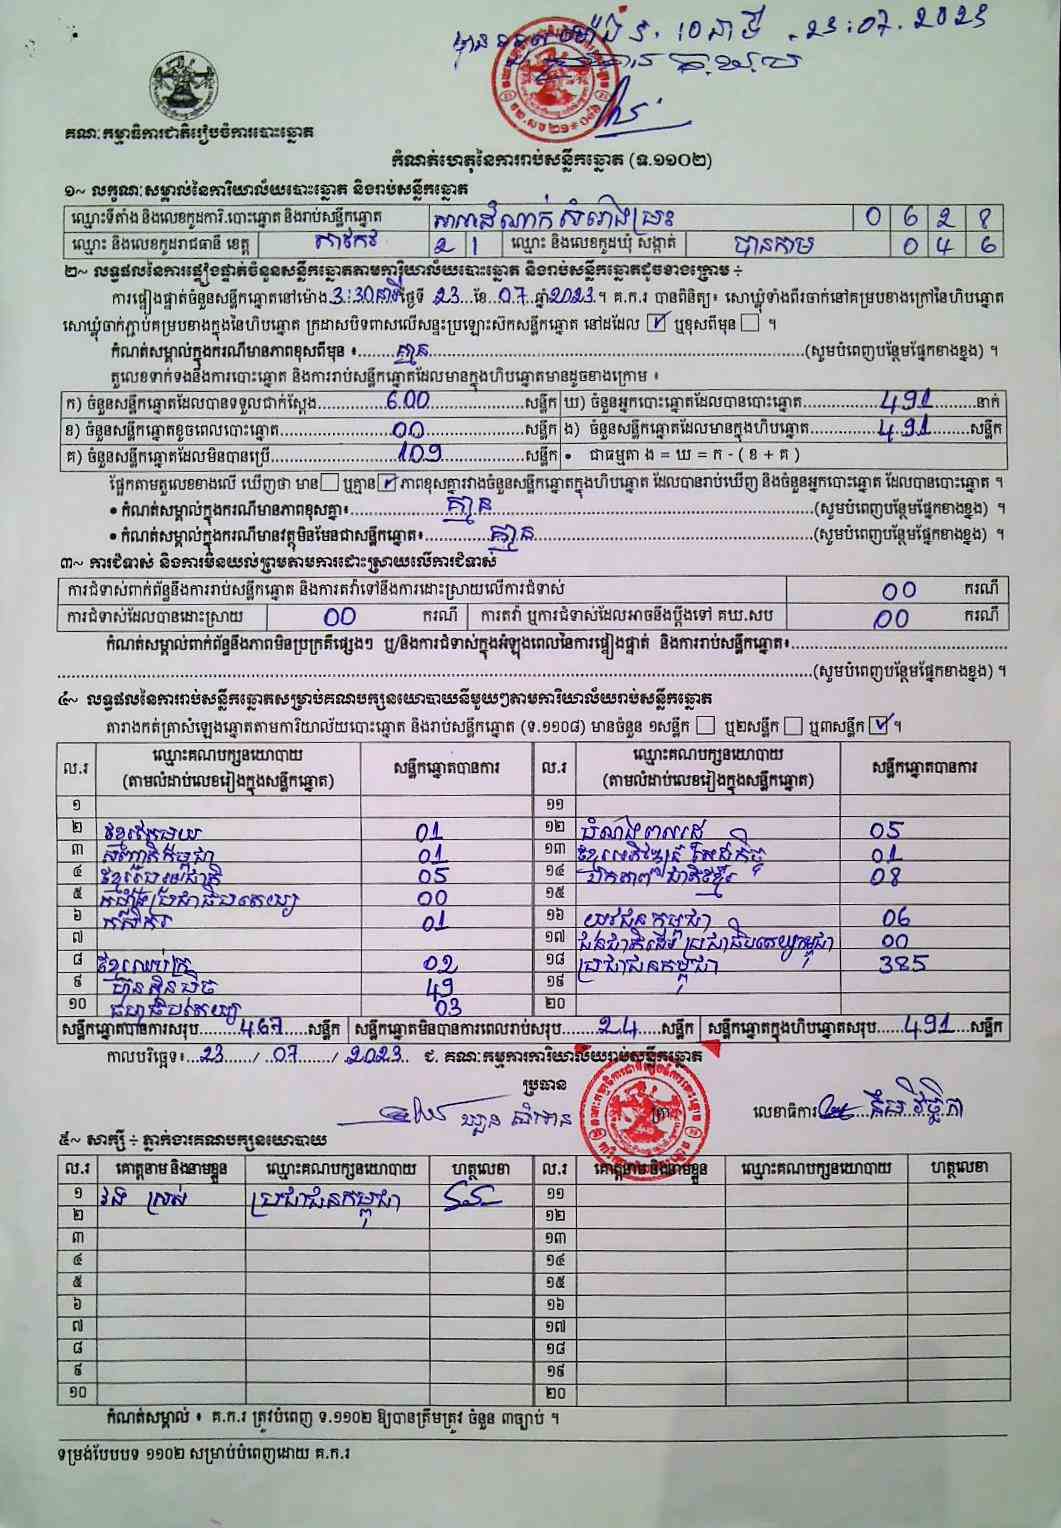 23.07.2023
គណៈកម្មាធិការជាតិរៀបចំការបោះឆ្នោត
កំណត់ហេតុនៃការរាប់សន្លឹកឆ្នោត (ទ.១១០២)
១~ លក្ខណៈសម្គាល់នៃការិយាល័យបោះឆ្នោត និងរាប់សន្លឹកឆ្នោត
ឈ្មោះទីតាំង និងលេខកូដការិ.បោះឆ្នោត និងរាប់សន្លឹកឆ្នោត សាលាដំណាក់សំរោងព្រះ 0 6 2 8
ឈ្មោះ និងលេខកូដរាជធានី ខេត្ត តាកែវ 2 1 ឈ្មោះ និងលេខកូដឃុំ សង្កាត់ បានកាម 0 4 6
២~ លទ្ធផលនៃការផ្ទៀងផ្ទាត់ចំនួនសន្លឹកឆ្នោតតាមការិយាល័យបោះឆ្នោត និងរាប់សន្លឹកឆ្នោតដូចខាងក្រោម ÷
ការផ្ទៀងផ្ទាត់ចំនួនសន្លឹកឆ្នោតនៅម៉ោង 3:30នាទី ថ្ងៃទី 23 ខែ 07 ឆ្នាំ 2023 ។ គ.ក.រ បានពិនិត្យ៖ សោឃ្លុំទាំងពីរចាក់នៅគម្របខាងក្រៅនៃហិបឆ្នោត
សោឃ្លុំចាក់ភ្ជាប់គម្របខាងក្នុងនៃហិបឆ្នោត ក្រដាសបិទពាសលើសន្ទះប្រឡោះស៊កសន្លឹកឆ្នោត នៅដដែល ☑ ឬខុសពីមុន ☐ ។
កំណត់សម្គាល់ក្នុងករណីមានភាពខុសពីមុន ៖ គ្មាន (សូមបំពេញបន្ថែមផ្នែកខាងខ្នង) ។
តួលេខទាក់ទងនឹងការបោះឆ្នោត និងការរាប់សន្លឹកឆ្នោតដែលមានក្នុងហិបឆ្នោតមានដូចខាងក្រោម ៖
ក) ចំនួនសន្លឹកឆ្នោតដែលបានទទួលជាក់ស្តែង 600 សន្លឹក ឃ) ចំនួនអ្នកបោះឆ្នោតដែលបានបោះឆ្នោត 491 នាក់
ខ) ចំនួនសន្លឹកឆ្នោតខូចពេលបោះឆ្នោត 00 សន្លឹក ង) ចំនួនសន្លឹកឆ្នោតដែលមានក្នុងហិបឆ្នោត 491 សន្លឹក
គ) ចំនួនសន្លឹកឆ្នោតដែលមិនបានប្រើ 109 សន្លឹក • ជាធម្មតា ង = ឃ = ក - ( ខ + គ )
ផ្អែកតាមតួលេខខាងលើ ឃើញថា មាន ☐ ឬគ្មាន ☑ ភាពខុសគ្នារវាងចំនួនសន្លឹកឆ្នោតក្នុងហិបឆ្នោត ដែលបានរាប់ឃើញ និងចំនួនអ្នកបោះឆ្នោត ដែលបានបោះឆ្នោត ។
• កំណត់សម្គាល់ក្នុងករណីមានភាពខុសគ្នា៖ គ្មាន (សូមបំពេញបន្ថែមផ្នែកខាងខ្នង) ។
• កំណត់សម្គាល់ក្នុងករណីមានវត្ថុមិនមែនជាសន្លឹកឆ្នោត៖ គ្មាន (សូមបំពេញបន្ថែមផ្នែកខាងខ្នង) ។
៣~ ការជំទាស់ និងការមិនយល់ព្រមតាមការដោះស្រាយលើការជំទាស់
ការជំទាស់ពាក់ព័ន្ធនឹងការរាប់សន្លឹកឆ្នោត និងការតវ៉ាទៅនឹងការដោះស្រាយលើការជំទាស់ 00 ករណី
ការជំទាស់ដែលបានដោះស្រាយ 00 ករណី ការតវ៉ា ឬការជំទាស់ដែលអាចនឹងប្តឹងទៅ គឃ.សប 00 ករណី
កំណត់សម្គាល់ពាក់ព័ន្ធនឹងភាពមិនប្រក្រតីផ្សេងៗ ឬ/និងការជំទាស់ក្នុងអំឡុងពេលនៃការផ្ទៀងផ្ទាត់ និងការរាប់សន្លឹកឆ្នោត៖
(សូមបំពេញបន្ថែមផ្នែកខាងខ្នង) ។
៤~ លទ្ធផលនៃការរាប់សន្លឹកឆ្នោតសម្រាប់គណបក្សនយោបាយនីមួយៗតាមការិយាល័យរាប់សន្លឹកឆ្នោត
តារាងកត់ត្រាសំឡេងឆ្នោតតាមការិយាល័យបោះឆ្នោត និងរាប់សន្លឹកឆ្នោត (ទ.១១០៨) មានចំនួន ១សន្លឹក ☐ ឬ២សន្លឹក ☐ ឬ៣សន្លឹក ☑ ។
ល.រ ឈ្មោះគណបក្សនយោបាយ (តាមលំដាប់លេខរៀងក្នុងសន្លឹកឆ្នោត) សន្លឹកឆ្នោតបានការ ល.រ ឈ្មោះគណបក្សនយោបាយ (តាមលំដាប់លេខរៀងក្នុងសន្លឹកឆ្នោត) សន្លឹកឆ្នោតបានការ
១ ១១
២ ខ្មែរតែមួយ 01 ១២ សំណាងពលរដ្ឋ 05
៣ សញ្ជាតិកម្ពុជា 01 ១៣ ខ្មែរអភិវឌ្ឍន៍សេដ្ឋកិច្ច 01
៤ ខ្មែររួបរួមជាតិ 05 ១៤ ឯកភាពជាតិខ្មែរ 08
៥ កម្លាំងប្រជាធិបតេយ្យ 00 ១៥
៦ កសិករ 01 ១៦ យុវជនកម្ពុជា 06
៧ ១៧ ជនជាតិដើមប្រជាធិបតេយ្យកម្ពុជា 00
៨ ខ្មែរឈប់ក្រ 02 ១៨ ប្រជាជនកម្ពុជា 385
៩ ហ៊្វុនស៊ិនប៉ិច 49 ១៩
១០ ធម្មាធិបតេយ្យ 03 ២០
សន្លឹកឆ្នោតបានការសរុប 467 សន្លឹក សន្លឹកឆ្នោតមិនបានការពេលរាប់សរុប 24 សន្លឹក សន្លឹកឆ្នោតក្នុងហិបឆ្នោតសរុប 491 សន្លឹក
កាលបរិច្ឆេទ៖ 23 / 07 / 2023 ជ. គណៈកម្មការការិយាល័យរាប់សន្លឹកឆ្នោត
ប្រធាន ត្រា លេខាធិការ
៥~ សាក្សី ÷ ភ្នាក់ងារគណបក្សនយោបាយ
ល.រ គោត្តនាម និងនាមខ្លួន ឈ្មោះគណបក្សនយោបាយ ហត្ថលេខា ល.រ គោត្តនាម និងនាមខ្លួន ឈ្មោះគណបក្សនយោបាយ ហត្ថលេខា
១ វង់ ស្រស់ ប្រជាជនកម្ពុជា ១១
២ ១២
៣ ១៣
៤ ១៤
៥ ១៥
៦ ១៦
៧ ១៧
៨ ១៨
៩ ១៩
១០ ២០
កំណត់សម្គាល់ ៖ គ.ក.រ ត្រូវបំពេញ ទ.១១០២ ឱ្យបានត្រឹមត្រូវ ចំនួន ៣ច្បាប់ ។
ទម្រង់បែបបទ ១១០២ សម្រាប់បំពេញដោយ គ.ក.រ